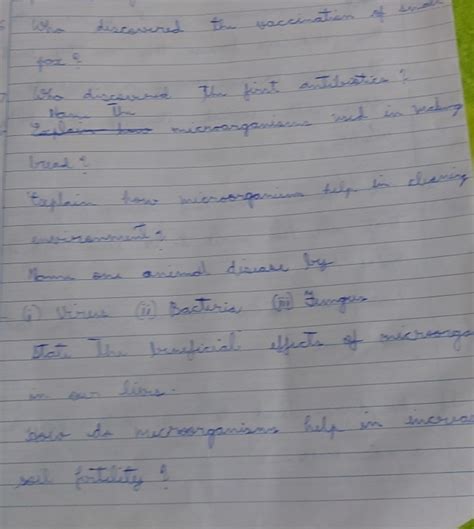 Who discovered the vaccination of small
pox ?
Who discovered the first antibiotics ?
Name the
Explain how microorganisms used in making
bread ?
Explain how microorganism help in cleaning
environment ?
Name one animal disease by
(i) Virus (ii) Bacteria (iii) Fungus
State the beneficial effects of microorga
in our lives.
How do microorganisms help in increas
soil fertility ?